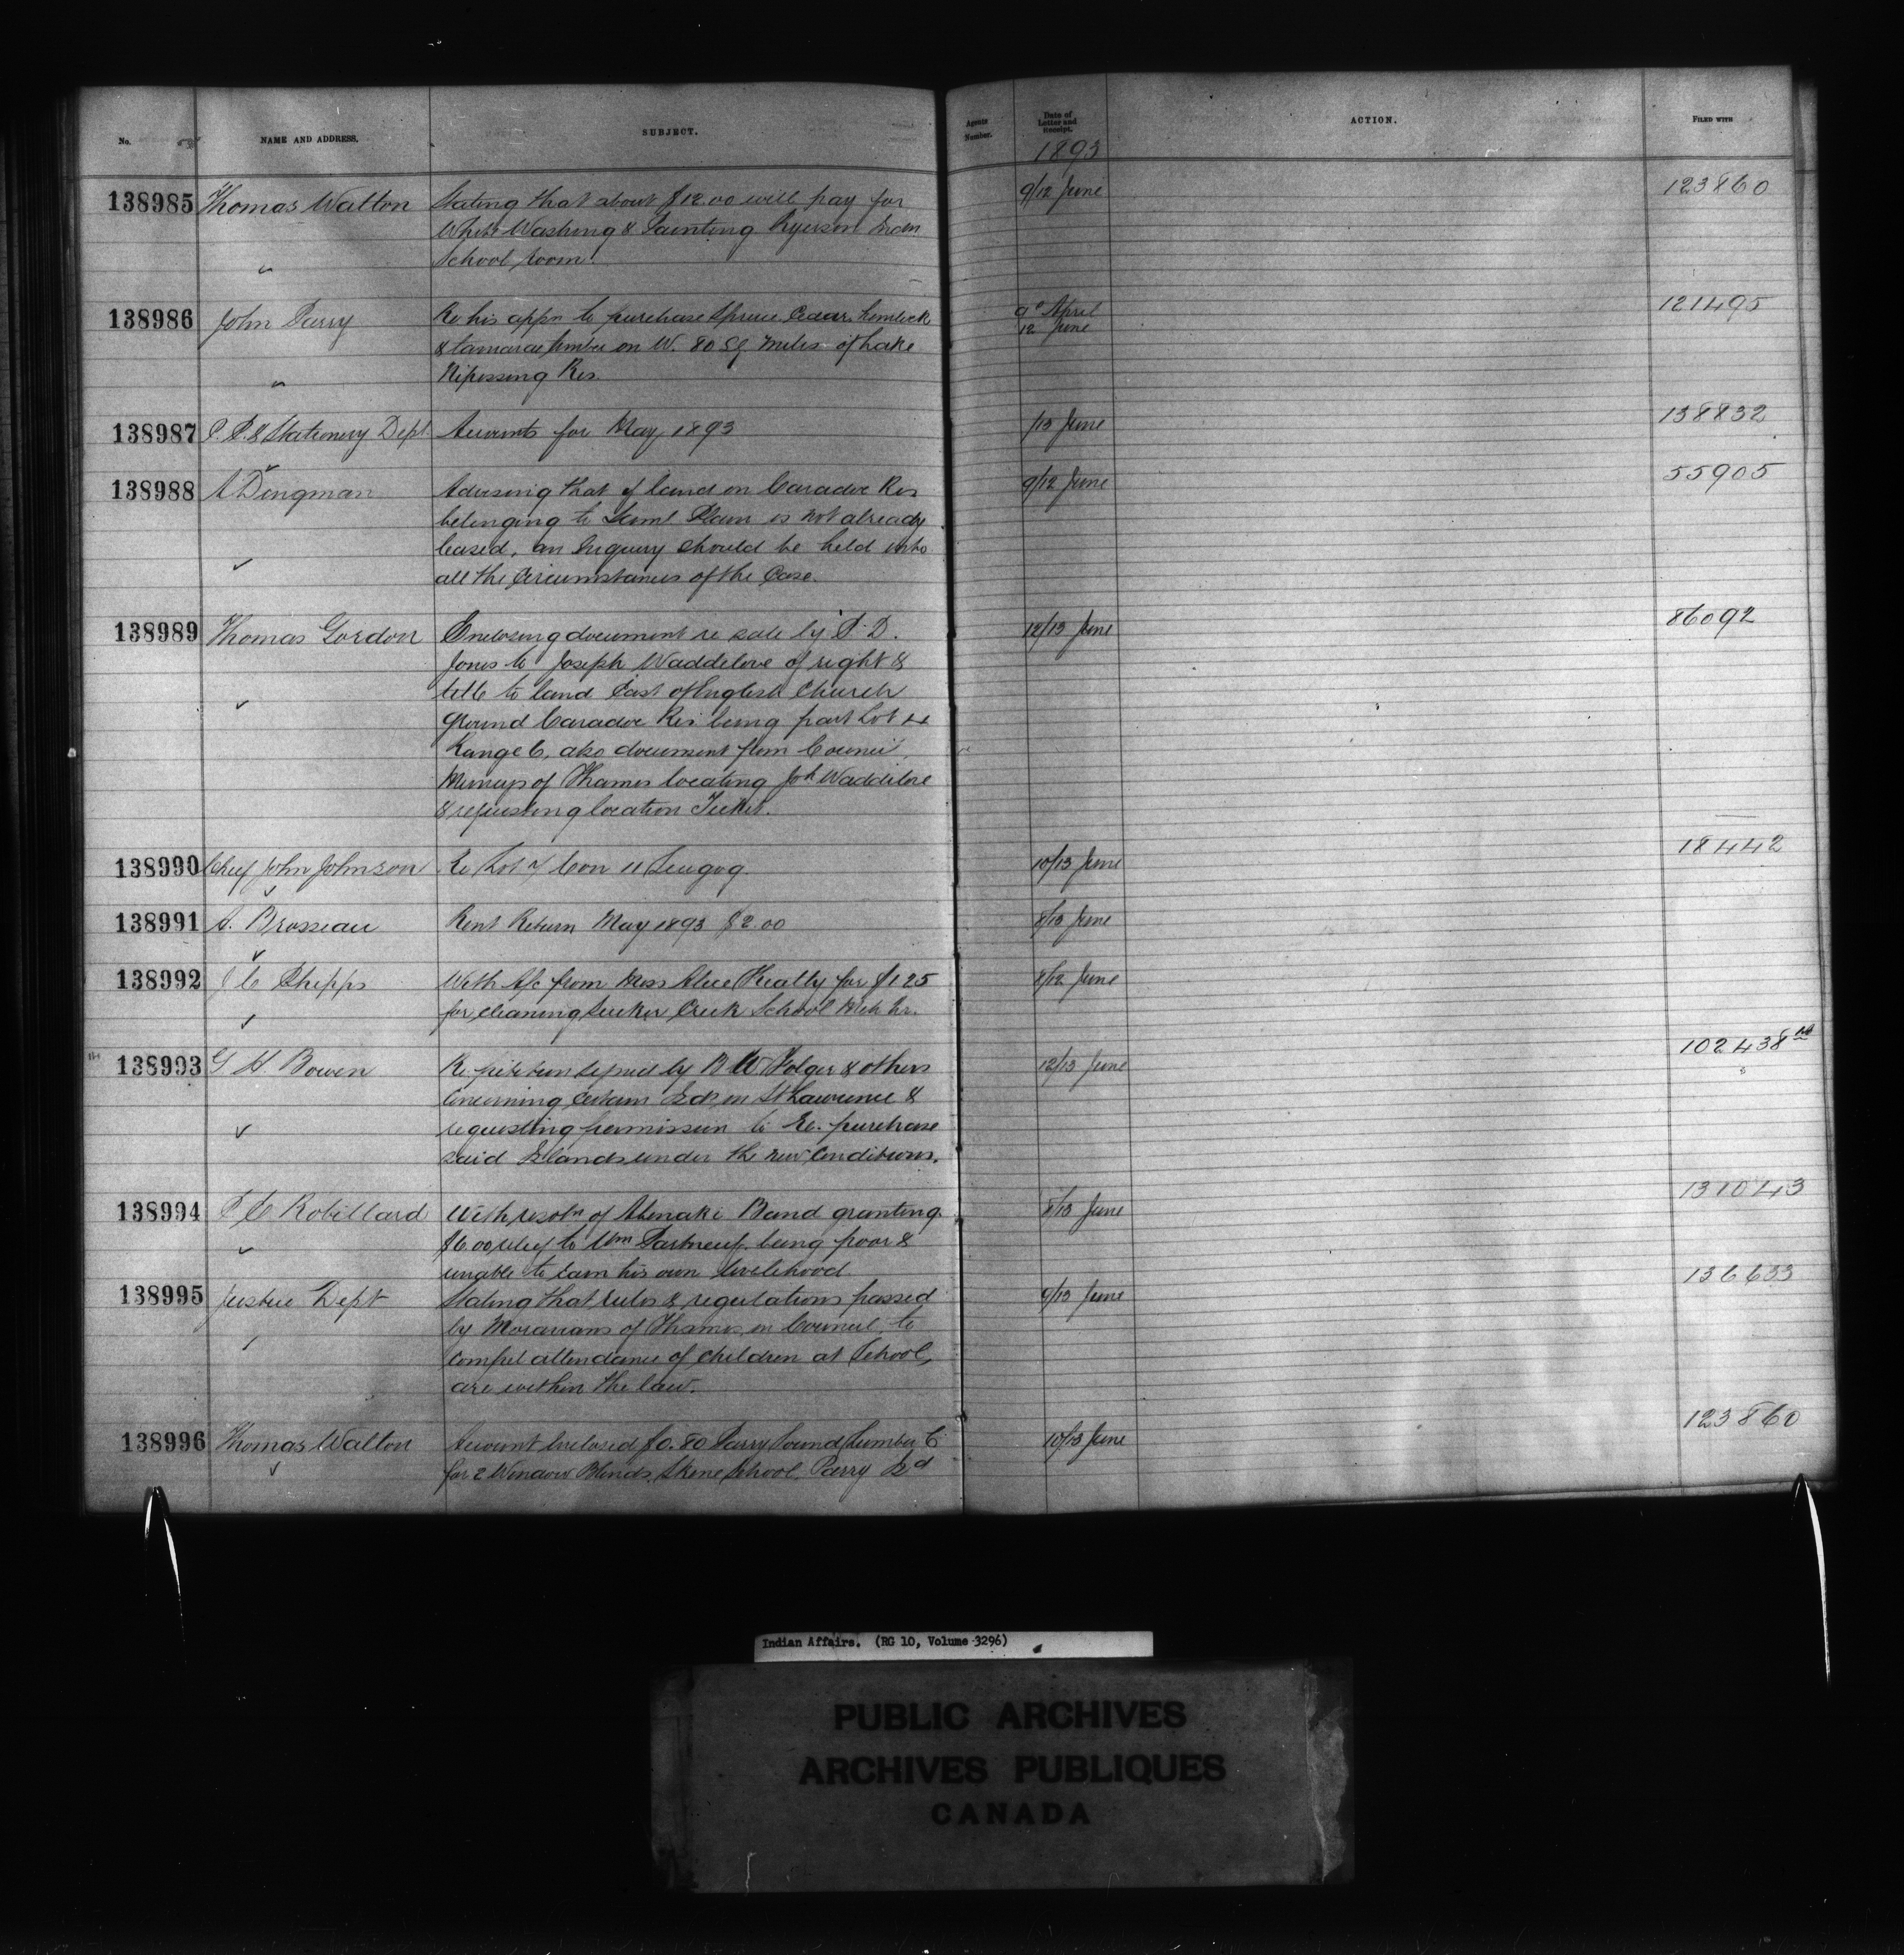 No.
NAME AND ADDRESS.
SUBJECT.
Agents Number.
Date of Letter and Receipt.
ACTION.
FILED WITH
1893
138985 Thomas Walton Stating that about $12.00 will pay for 9/12 June 123860
White Washing & Painting Ryerson Indn
School Room.
138986 John Parry Re his appn to purchase Spruce, Cedar, hemlock 9th April 121495
& tamarac timber on W. 80 Sq Miles of Lake 12 June
Nipissing Res.
138987 P. P. & Stationery Dept Accounts for May 1893 /13 June 138832
138988 A Dingman Advising that if land on Caradoc Res 9/12 June 55905
belonging to Saml Plain is not already
leased, an Inquiry should be held into
all the Circumstances of the Case.
138989 Thomas Gordon Enclosing document re sale by P. D. 12/13 June 86092
Jones to Joseph Waddilove of right &
title to land East of English Church
ground Caradoc Res being part Lot
Range 6, also document from Council
Munceys of Thames locating Jos Waddilove
& requesting location Ticket.
138990 Chief John Johnson Re Lot 7 Con 11 Scugog 10/13 June 18442
138991 A. Brosseau Rent Return May 1893 $2.00 8/13 June
138992 J C Phipps With A/c from Miss Alice Keatly for $1.25 8/12 June
for cleaning Sucker Creek School
138993 G H. Bowen Re petition signed by B W Folger & others 12/13 June 102438
Concerning Certain Isds in St Lawrence &
requesting permission to Re-purchase
said Islands under the new Conditions.
138994 P E Robillard With resoln of Abenaki Band granting 8/13 June 131043
$6.00 relief to Wm Portneuf, being poor &
unable to earn his own livelihood
138995 Justice Dept Stating that rules & regulations passed 9/13 June 136633
by Moravians of Thames, in Council, to
compel attendance of Children at School,
are within the law.
138996 Thomas Walton Account Enclosed $0.80 Parry Sound Lumber Co 10/13 June 123860
for 2 Window Blinds, Skene School, Parry Isd
Indian Affairs. (RG 10, Volume 3296)
PUBLIC ARCHIVES
ARCHIVES PUBLIQUES
CANADA